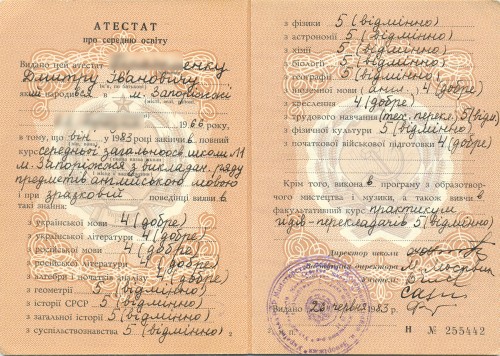 АТЕСТАТ
про середню освіту
Видано цей атестат енку
Дмитру Івановичу
(ім'я, по батькові)
народився м. Запоріжжі
1966 року,
в тому, що він у 1983 році закінчив повний
курс середньої загальноосв. школи
м. Запоріжжя з виклад. ряду
предметів англійською мовою
і при зразковий поведінці виявив
такі знання:
з української мови 4 (добре)
з української літератури 4 (добре)
з російської мови 4 (добре)
з російської літератури 4 (добре)
з алгебри і початків аналізу 4 (добре)
з геометрії 5 (відмінно)
з історії СРСР 5 (відмінно)
з загальної історії 5 (відмінно)
з суспільствознавства 5 (відмінно)
з фізики 5 (відмінно)
з астрономії 5 (відмінно)
з хімії 5 (відмінно)
з біології 5 (відмінно)
з географії 5 (відмінно)
з іноземної мови (англ.) 4 (добре)
з креслення 4 (добре)
з трудового навчання (тех. перекл.) 5 (відм.)
з фізичної культури 5 (відмінно)
з початкової військової підготовки 4 (добре)
Крім того, виконав програму з образотвор-
чого мистецтва і музики, а також вивчив
факультативний курс практикум
гідів-перекладачів 5 (відмінно)
Директор школи
Заступники директора
Видано 23 червня 1983 р.
Н № 255442